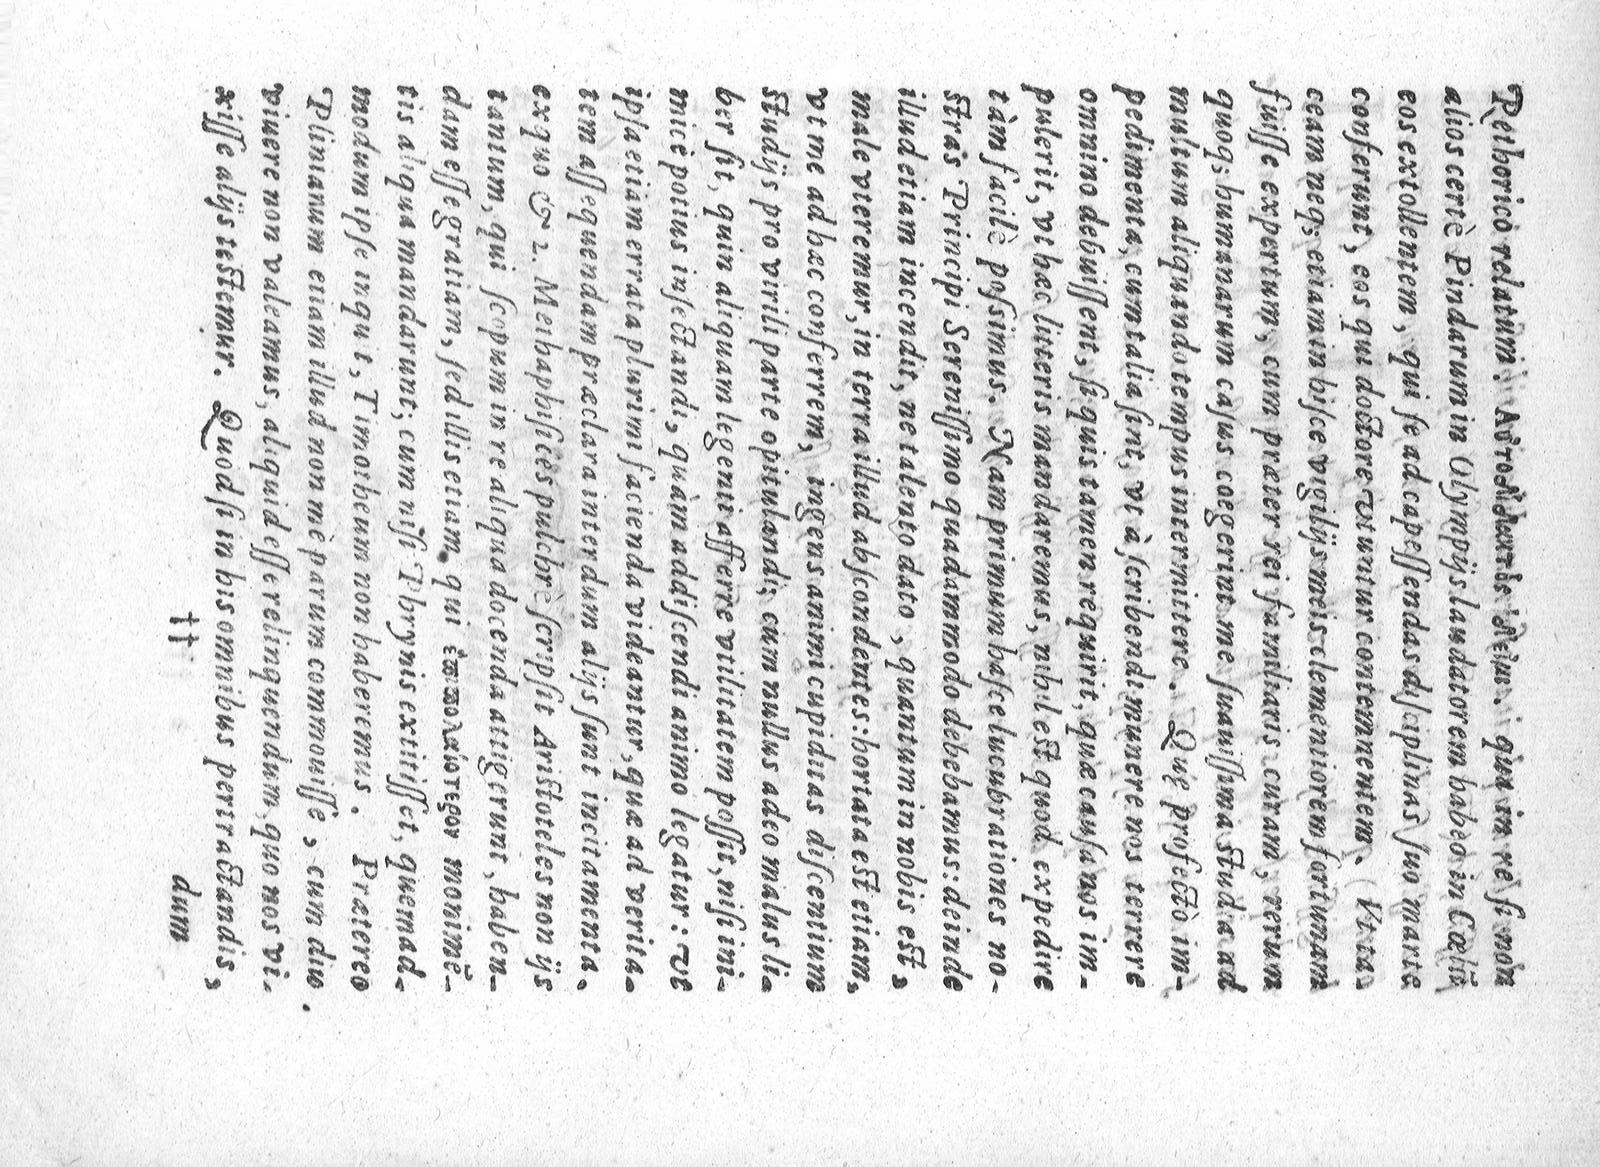 Rethorico relatum. Αὐτοδίδακτος εἰμι. i qua in re si non
alios certè Pindarum in Olympijs laudatorem habeo in Cœlũ
eos extollentem, qui se ad capessendas disciplinas suo marte
conferunt, eos qui doctore vtuntur contemnentem. (Vt ta-
ceam neq; etiam in hisce vigilijs meis clementiorem fortunam
fuisse expertum, cum præter rei familiaris curam, rerum
quoq; humanarum casus coegerint me suauissima studia ad
multum aliquando tempus intermittere. Quę profectò im-
pedimenta, cum talia sint, vt à scribendi munere nos terrere
omnino debuissent, si quis tamen requirit, quæ causa nos im-
pulerit, vt hæc litteris mandaremus, nihil est quod expedire
tàm facilè possimus. Nam primum hasce lucubrationes no-
stras Principi Serenissimo quadammodo debebamus: deinde
illud etiam incendit, ne talento dato, quantum in nobis est,
male vteremur, in terra illud abscondentes: hortata est etiam,
vt me ad hæc conferrem, ingens animi cupiditas discentium
studijs pro virili parte opitulandi; cum nullus adeo malus li-
ber sit, quin aliquam legenti afferre vtilitatem possit, nisi ini-
micè potius insectandi, quàm addiscendi animo legatur: vt
ipsa etiàm errata plurimi facienda videantur, quæ ad verita-
tem assequendam præclara interdum alijs sunt incitamenta.
ex quo & 2. Methaphisices pulchrè scripsit Aristoteles non ijs
tantum, qui scopum in re aliqua docenda attigerunt, haben-
dam esse gratiam, sed illis etiam qui ἐπιπολαιότερον monimē-
tis aliqua mandarunt; cum nisi Phrynis extitisset, quemad-
modum ipse inquit, Timotheum non haberemus. Prætereo
Plinianum etiam illud non mè parum commouisse, cum diu
viuere non valeamus, aliquid esse relinquendum, quo nos vi-
xisse alijs testemur. Quod si in his omnibus pertractandis,
†† dum